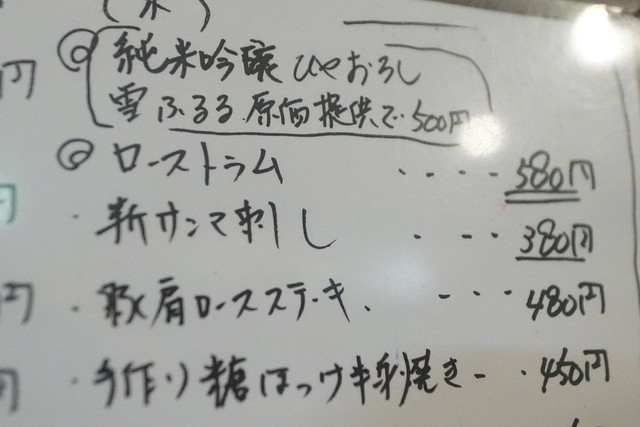 (米)
◎ 純米吟醸 ひやおろし
雪ふるる 原価提供で 500円
◎ ローストラム ････ 580円
・新サンマ刺し ･･･ 380円
・豚肩ロースステーキ ････ 480円
・手作り糠ほっけ半身焼き ･･ 450円
円
円
円
円